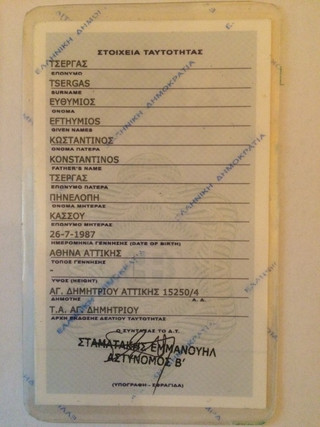 ΣΤΟΙΧΕΙΑ ΤΑΥΤΟΤΗΤΑΣ
ΤΣΕΡΓΑΣ
ΕΠΩΝΥΜΟ
TSERGAS
SURNAME
ΕΥΘΥΜΙΟΣ
ΟΝΟΜΑ
EFTHYMIOS
GIVEN NAMES
ΚΩΣΤΑΝΤΙΝΟΣ
ΟΝΟΜΑ ΠΑΤΕΡΑ
KONSTANTINOS
FATHER'S NAME
ΤΣΕΡΓΑΣ
ΕΠΩΝΥΜΟ ΠΑΤΕΡΑ
ΠΗΝΕΛΟΠΗ
ΟΝΟΜΑ ΜΗΤΕΡΑΣ
ΚΑΣΣΟΥ
ΕΠΩΝΥΜΟ ΜΗΤΕΡΑΣ
26-7-1987
ΗΜΕΡΟΜΗΝΙΑ ΓΕΝΝΗΣΗΣ (DATE OF BIRTH)
ΑΘΗΝΑ ΑΤΤΙΚΗΣ
ΤΟΠΟΣ ΓΕΝΝΗΣΗΣ
-
ΥΨΟΣ (HEIGHT)
ΑΓ. ΔΗΜΗΤΡΙΟΥ ΑΤΤΙΚΗΣ 15250/4
ΔΗΜΟΤΗΣ Α. Α.
Τ.Α. ΑΓ. ΔΗΜΗΤΡΙΟΥ
ΑΡΧΗ ΕΚΔΟΣΗΣ ΔΕΛΤΙΟΥ ΤΑΥΤΟΤΗΤΑΣ
Ο ΣΥΝΤΑΞΑΣ ΤΟ Δ.Τ.
ΣΤΑΜΑΤΑΚΗΣ ΕΜΜΑΝΟΥΗΛ
ΑΣΤΥΝΟΜΟΣ Β'
(ΥΠΟΓΡΑΦΗ - ΣΦΡΑΓΙΔΑ)
ΕΛΛΗΝΙΚΗ ΔΗΜΟΚΡΑΤΙΑ
ΕΛΛΗΝΙΚΗ ΔΗΜΟΚΡΑΤΙΑ